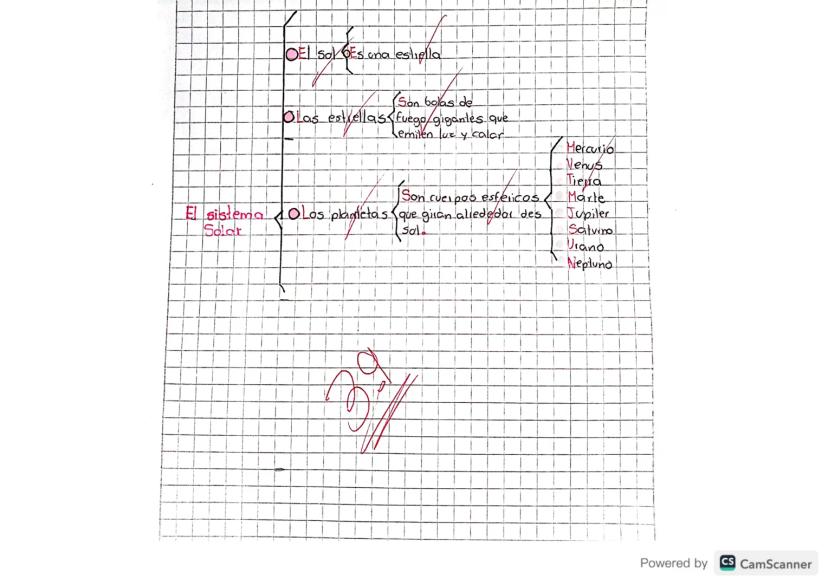 El sol Es una estrella
Las estrellas Son bolas de
fuego gigantes que
emiten luz y calor
El sistema
Solar
Los planetas Son cuerpos esféricos
que giran alrededor des
sol.
Mercurio
Venus
Tierra
Marte
Jupiter
Saturno
Urano
Neptuno
Powered by CS CamScanner